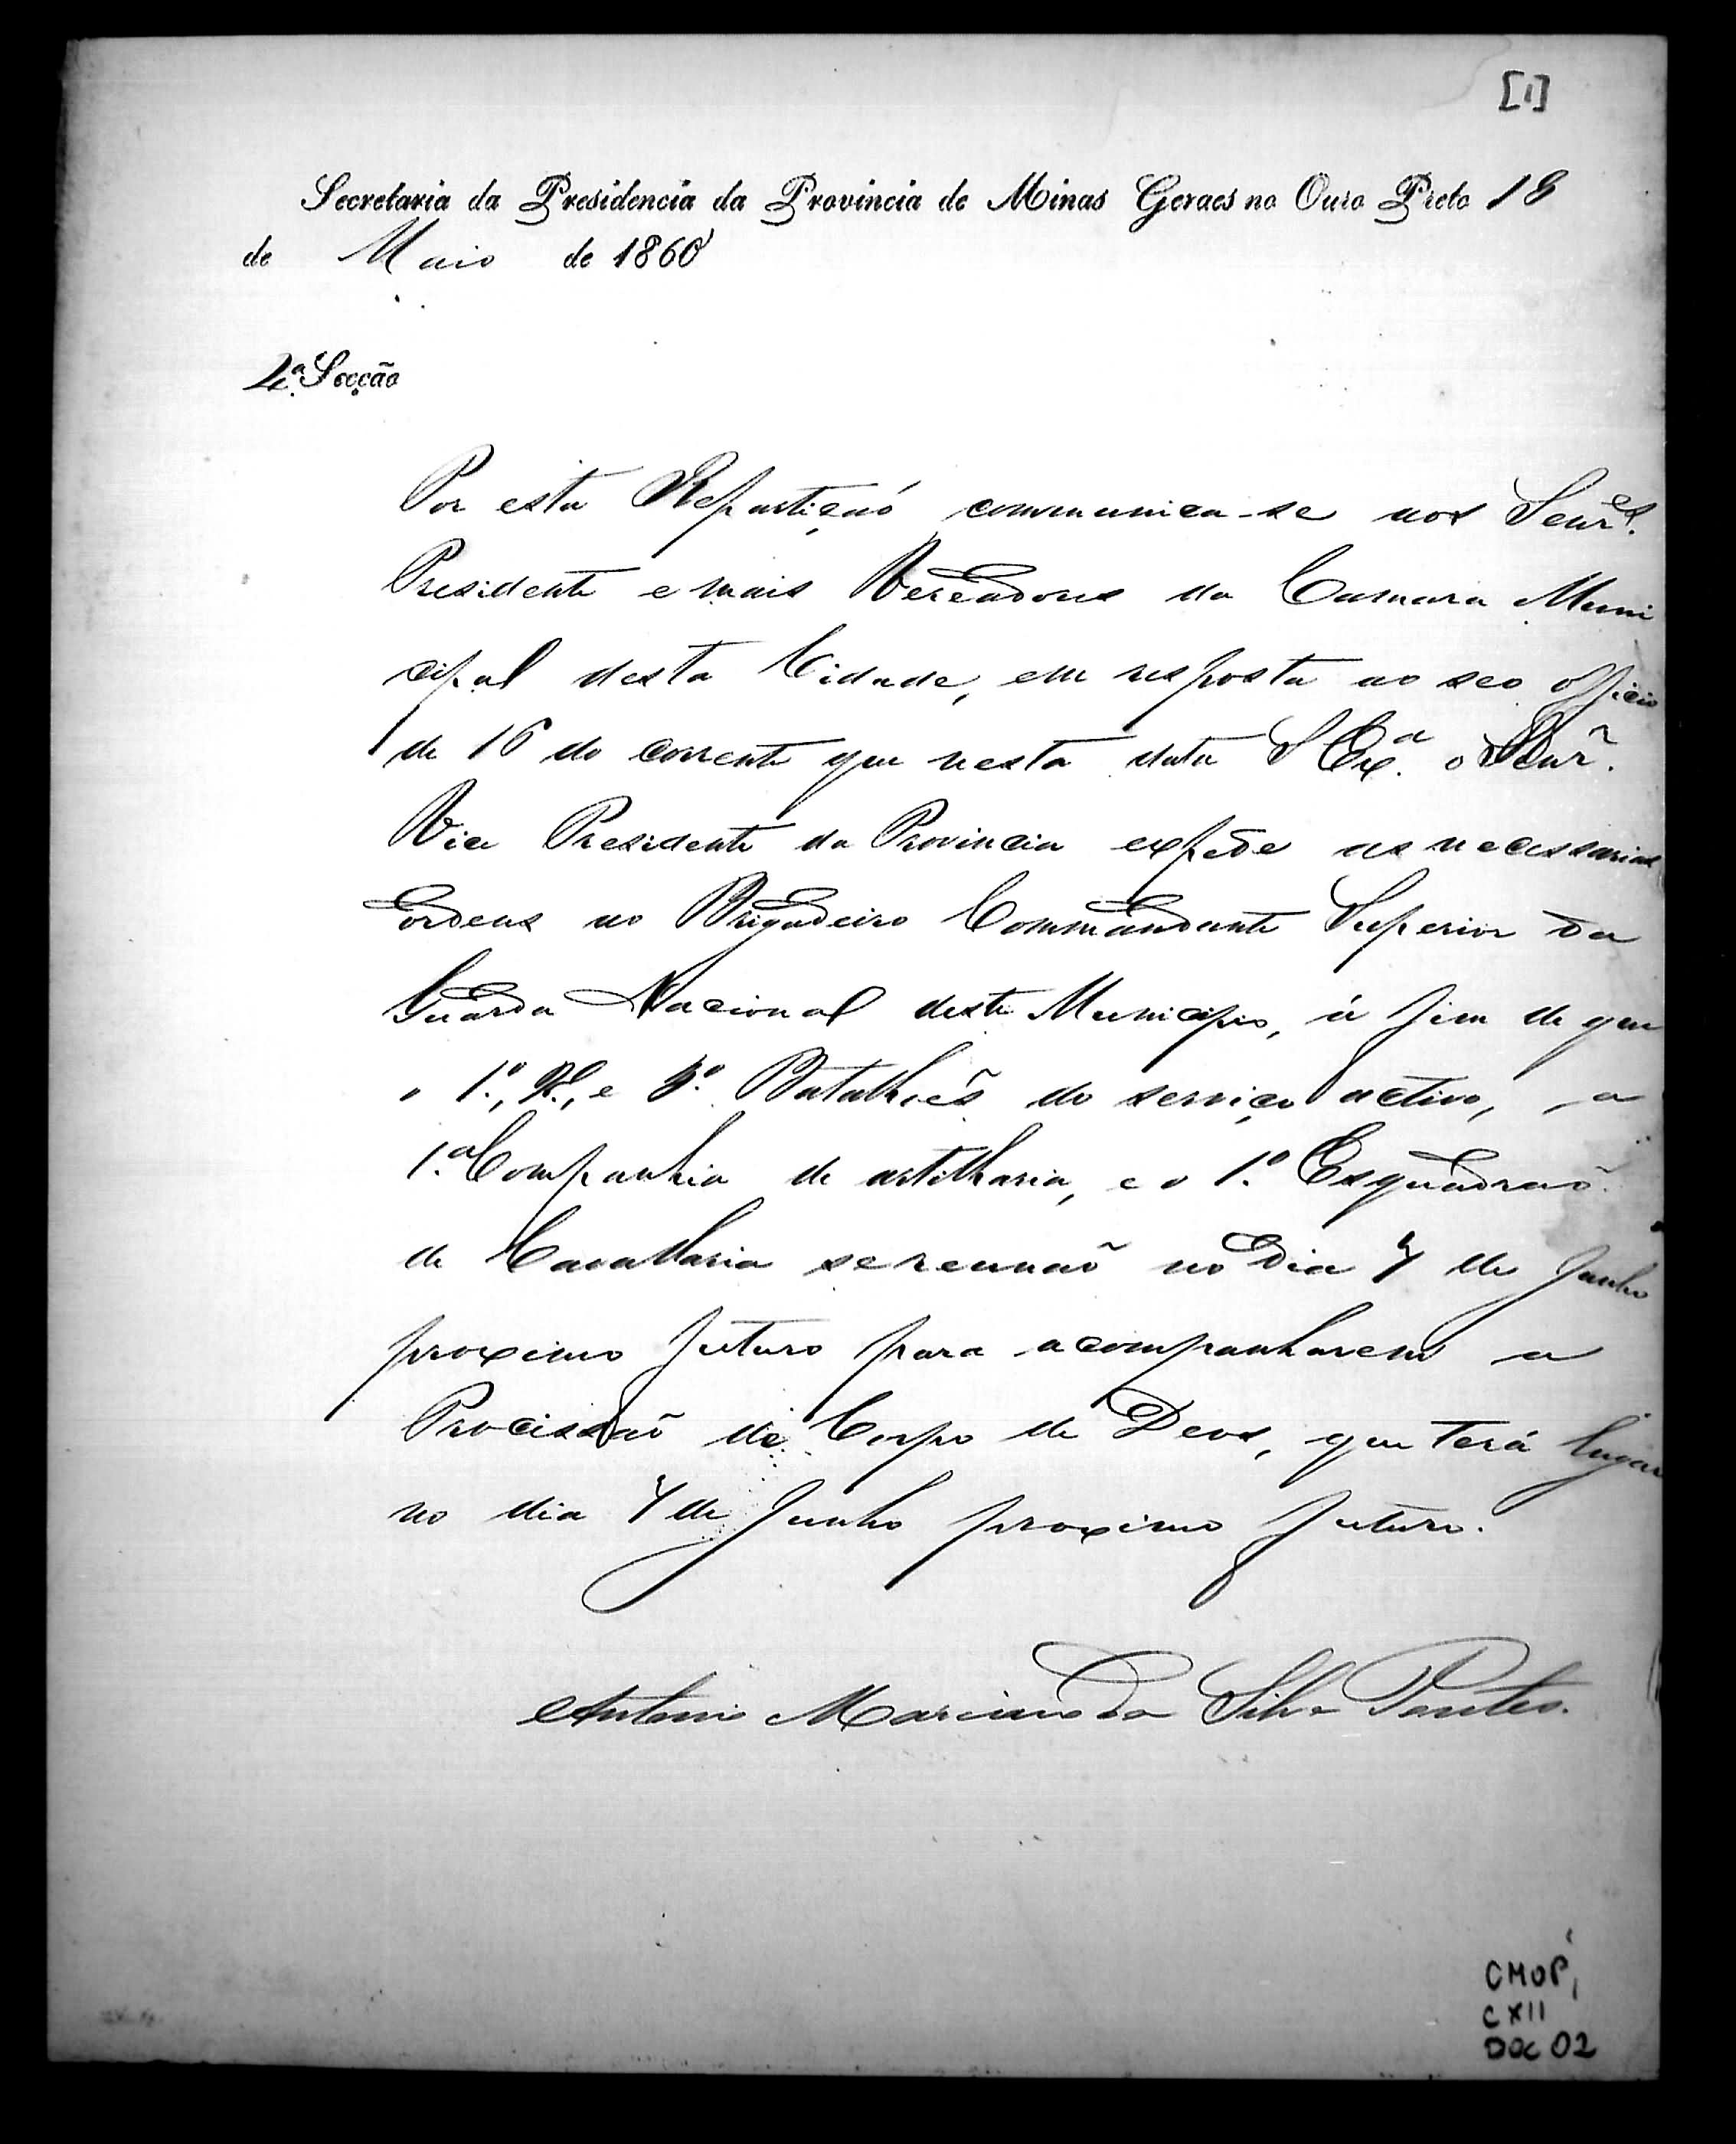 [1]
Secretaria da Presidencia da Provincia de Minas Geraes no Ouro Preto 18
de Maio de 1860
4.ª Secção
Por esta Repartiçaõ communica-se aos Senr.es
Presidente e mais Vereadores da Camara Muni
cipal desta Cidade, em resposta ao seo officio
de 16 do corrente que nesta data S Ex.ª o Senr.
Vice Presidente da Provincia expede as necessarias
ordens ao Brigadeiro Commandante Superior da
Guarda Nacional deste Municipio, á fim de que
o 1.º, 2.º, e 3.º Batalhoẽs do serviço activo, a
1.ª Companhia de artilharia, e o 1.º Esquadraõ
de Cavallaria se reunaõ no dia 7 de Junho
proximo futuro para acompanharem a
Procissaõ de Corpo de Deos, que terá lugar
no dia 7 de Junho proximo futuro.
Antonio da Silva Pontes.
CMOP,
CXII
DOC 02